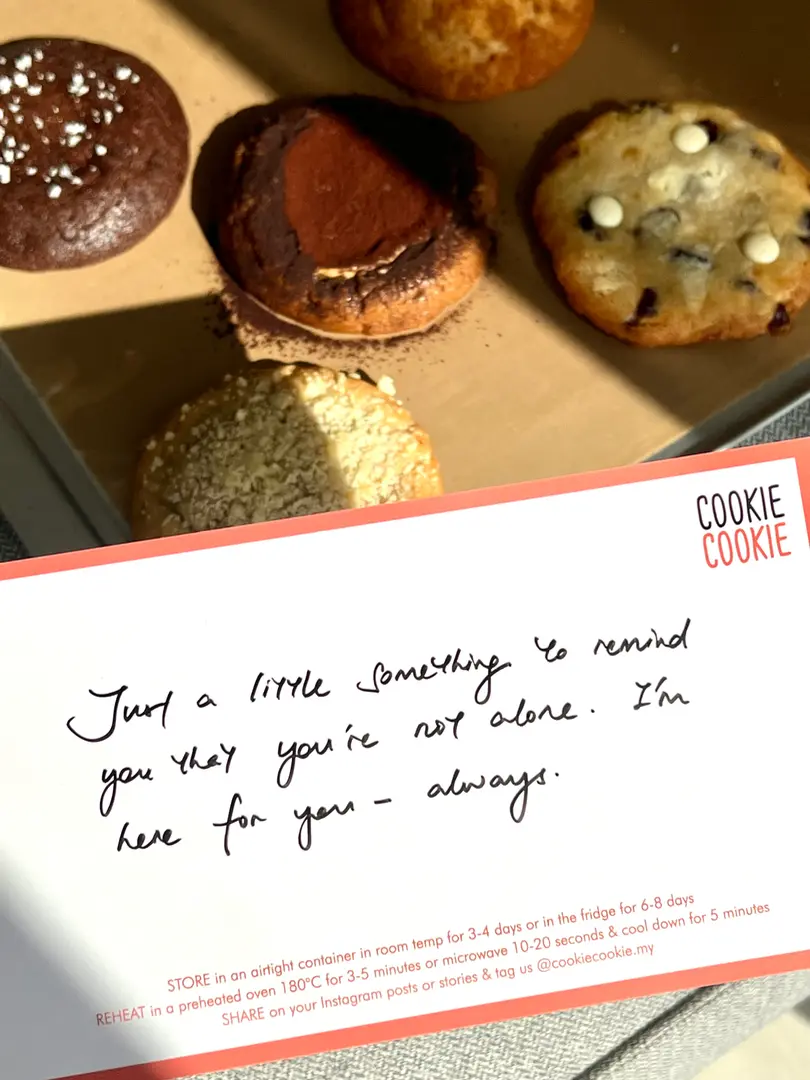 COOKIE
COOKIE
Just a little something to remind
you that you're not alone. I'm
here for you - always.
STORE in an airtight container in room temp for 3-4 days or in the fridge for 6-8 days
REHEAT in a preheated oven 180°C for 3-5 minutes or microwave 10-20 seconds & cool down for 5 minutes
SHARE on your Instagram posts or stories & tag us @cookiecookie.my